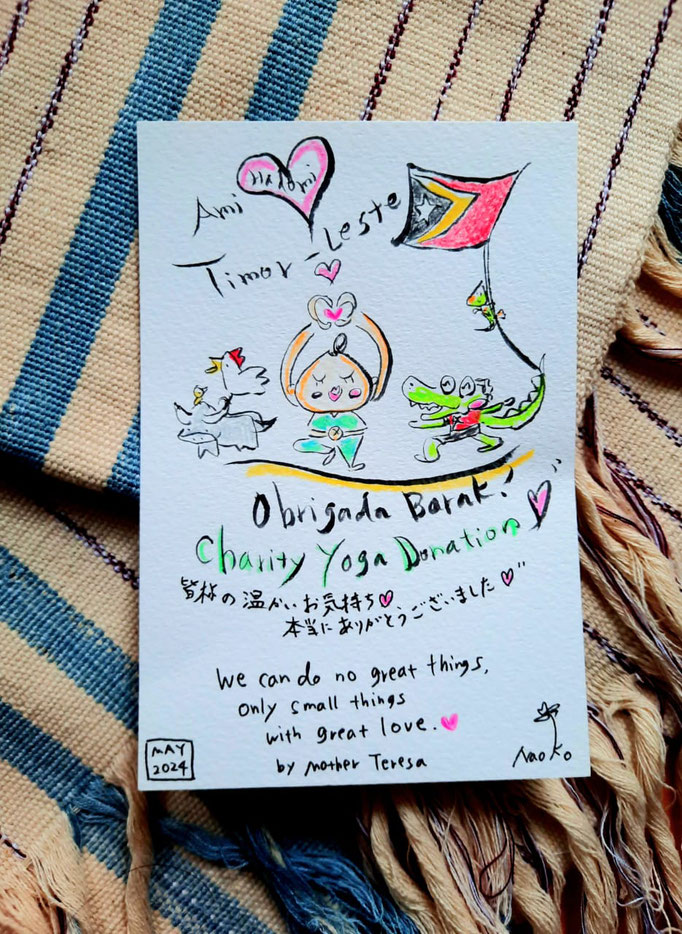 Ami Hadomi
Timor-Leste
Obrigada Barak!
Charity Yoga Donation
皆様の温かいお気持ち
本当にありがとうございました
We can do no great things,
only small things
with great love.
by Mother Teresa
MAY
2024
Naoko